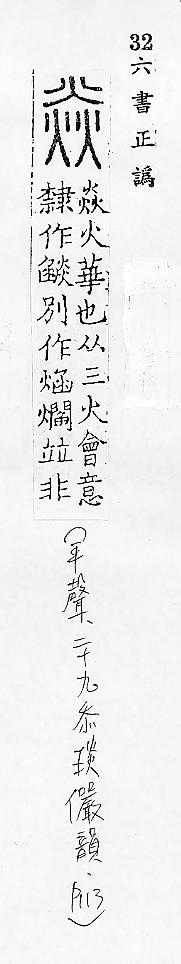 32六書正譌
焱
焱火華也从三火會意
隸作燄別作焰爓竝非
(平聲、二十九忝琰儼韻、P.13)